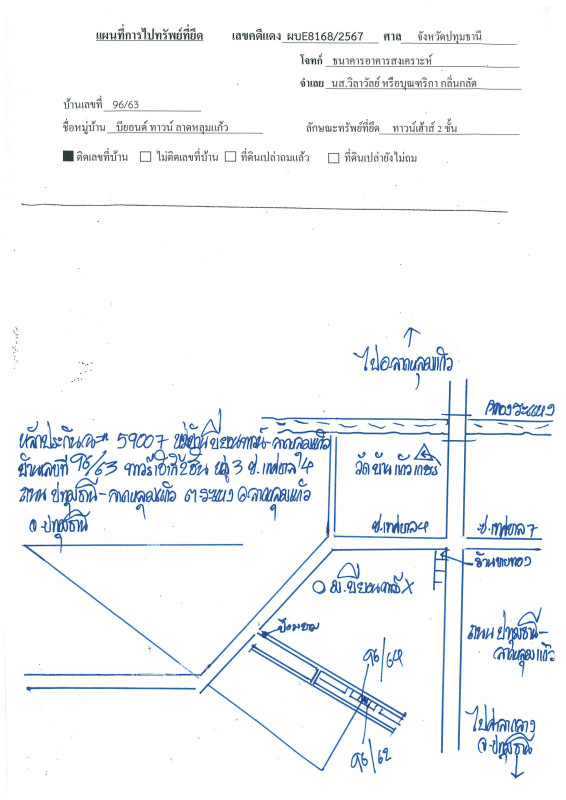 แผนที่การไปทรัพย์ที่ยึด เลขคดีแดง ผบE8168/2567 ศาล จังหวัดปทุมธานี
โจทก์ ธนาคารอาคารสงเคราะห์
จำเลย นส.วิลาวัลย์ หรือบุณฑริกา กลิ่นกลัด
บ้านเลขที่ 96/63
ชื่อหมู่บ้าน บียอนด์ ทาวน์ ลาดหลุมแก้ว ลักษณะทรัพย์ที่ยึด ทาวน์เฮ้าส์ 2 ชั้น
ติดเลขที่บ้าน ไม่ติดเลขที่บ้าน ที่ดินเปล่าถมแล้ว ที่ดินเปล่ายังไม่ถม
ไปอ.ลาดหลุมแก้ว
คลองระแหง
59007 หมู่บ้านบียอนทาวน์-ลาดหลุมแก้ว
บ้านเลขที่ 96/63 2 ชั้น หมู่ 3 ซ.เทศบาล 4
ถนน ปทุมธานี-ลาดหลุมแก้ว ต.ระแหง อ.ลาดหลุมแก้ว
จ.ปทุมธานี
วัดบัวแก้วเกษร
ซ.เทศบาล4
ซ.เทศบาล 7
ร้านขายทอง
ม.บียอนทาวน์
ป้อมยาม
ถนน ปทุมธานี-
ลาดหลุมแก้ว
96/64
96/62
ไปศาลากลาง
จ.ปทุมธานี